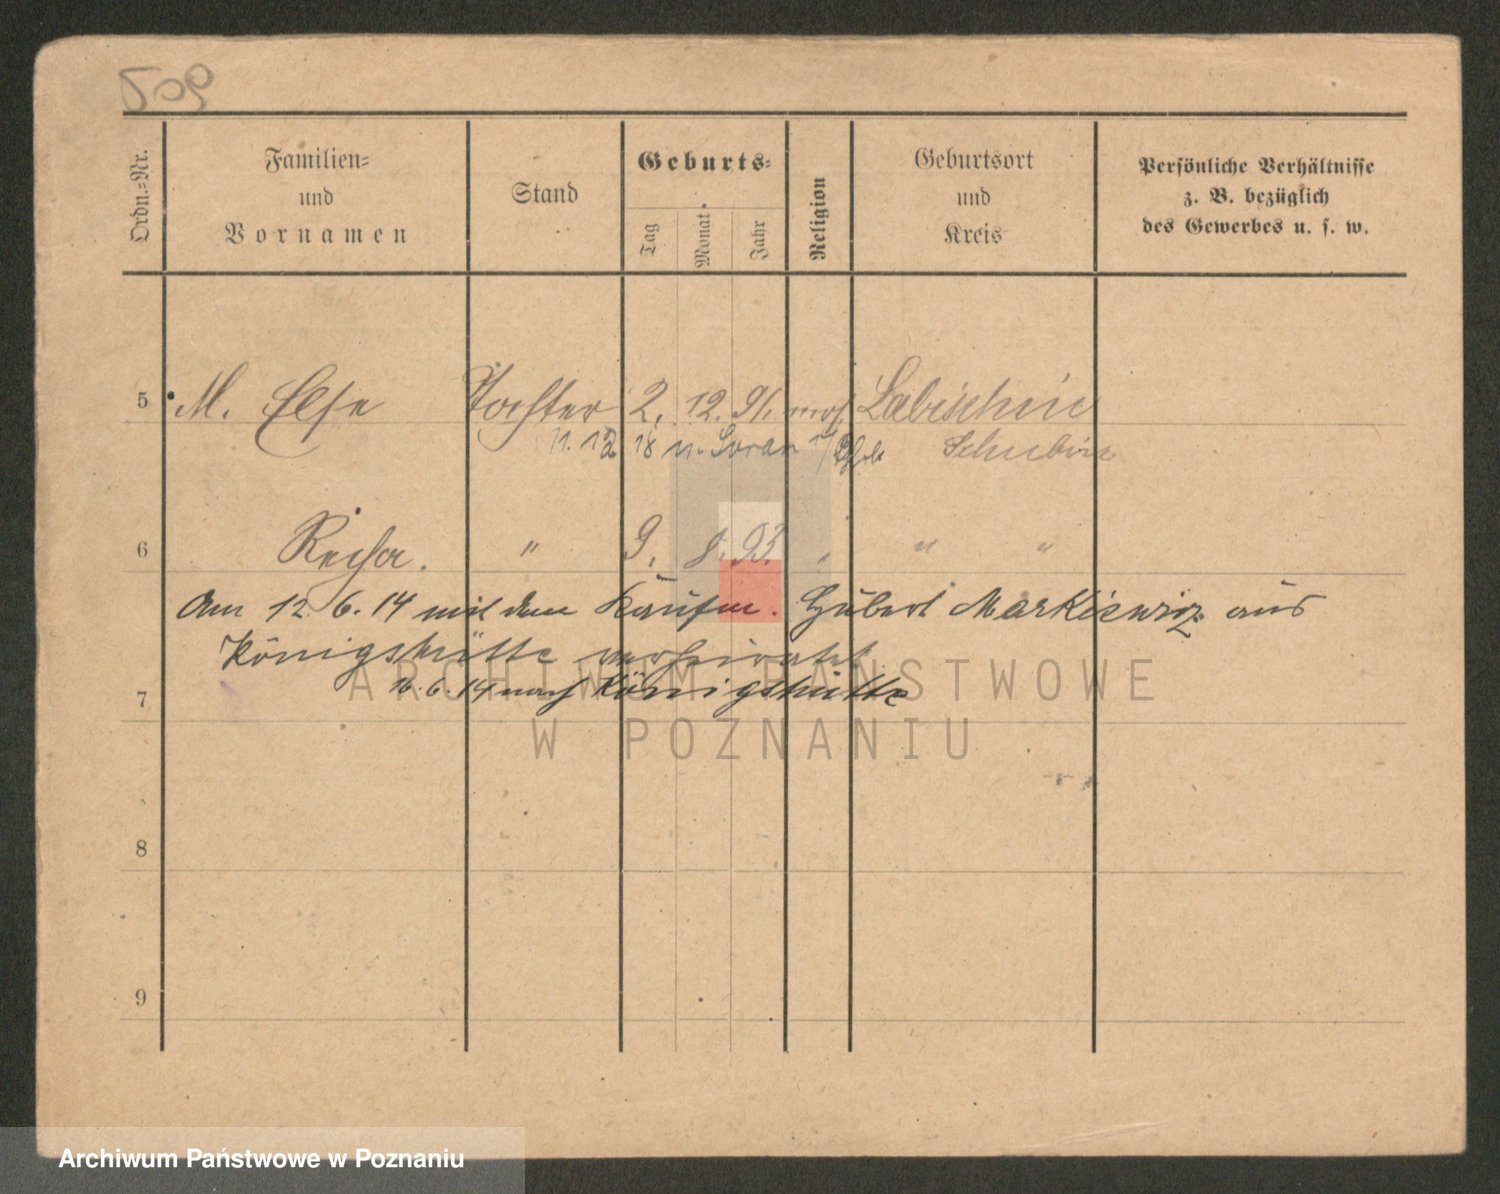 509
Ordn.-Nr.
Familien-
und
Vornamen
Stand
Geburts-
Tag
Monat
Jahr
Religion
Geburtsort
und
Kreis
Persönliche Verhältnisse
z. B. bezüglich
des Gewerbes u. s. w.
5 M. Else Tochter 2. 12. 91. mos. Labischin
11. 12 18 n. Soran Schubin
6 Recha. " 9. 8. 93. " " "
Am 12. 6. 14 mit dem Kaufm. Hubert Markiewicz aus
Königshütte verheiratet
16. 6. 14 nach Königshütte
7
8
9
ARCHIWUM PAŃSTWOWE
W POZNANIU
Archiwum Państwowe w Poznaniu